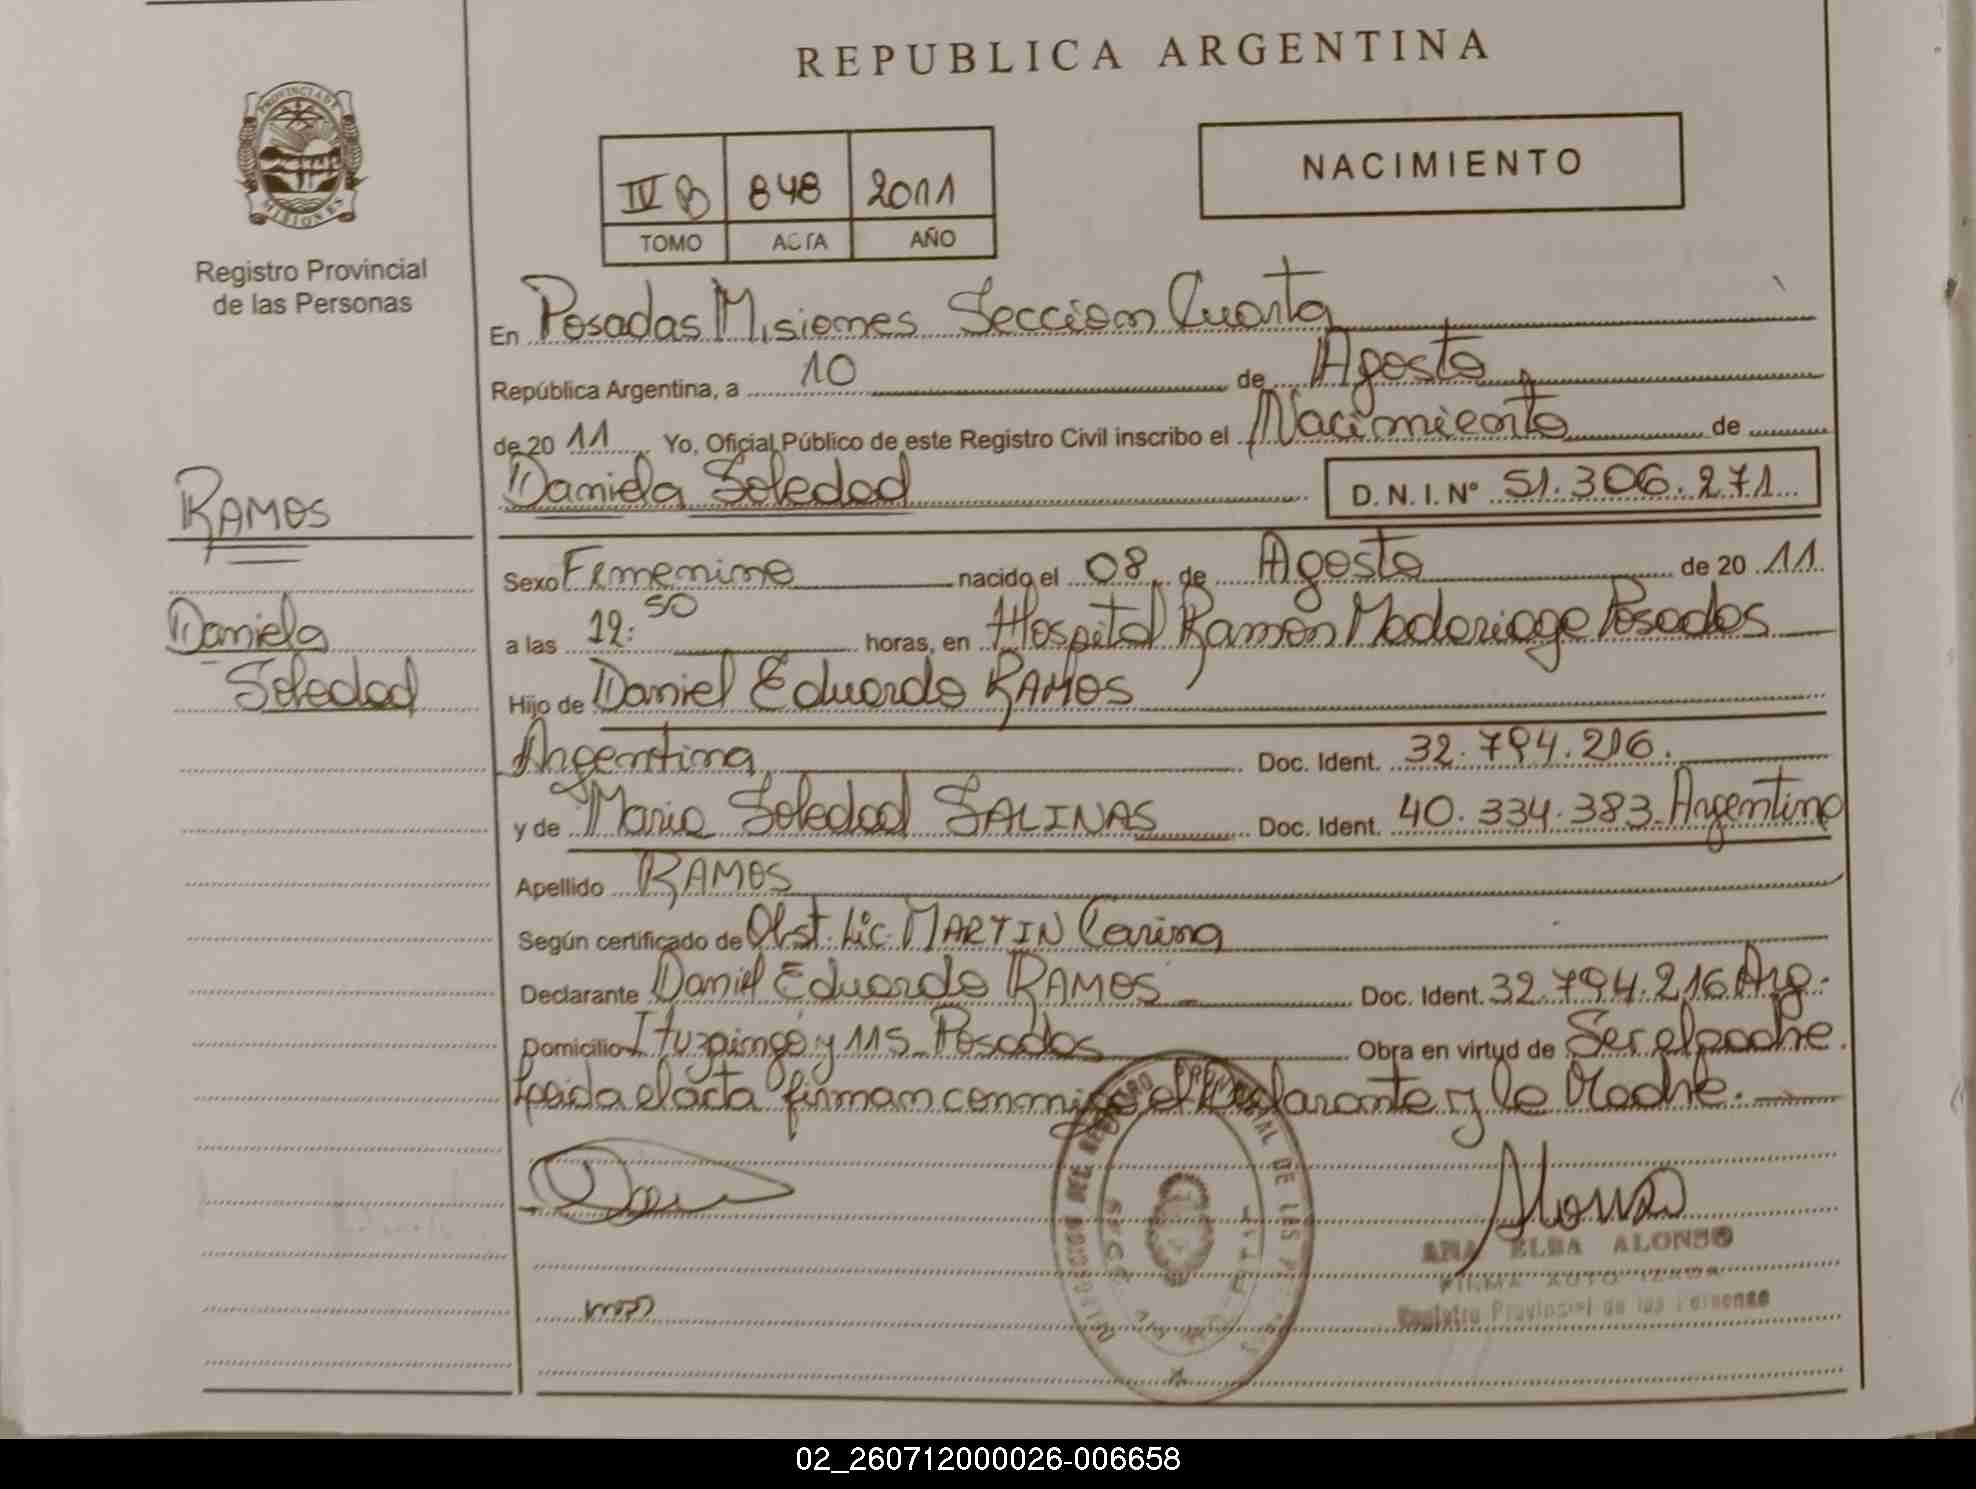 REPUBLICA ARGENTINA
PROVINCIA DE
MISIONES
Registro Provincial
de las Personas
IV B 848 2011
TOMO ACTA AÑO
NACIMIENTO
En Posadas Misiones Seccion Cuarta
República Argentina, a 10 de Agosto
de 20 11 Yo, Oficial Público de este Registro Civil inscribo el Nacimiento de
Daniela Soledad D. N. I. Nº 51.306.271
RAMOS
Daniela
Soledad
Sexo Femenino nacido el 08 de Agosto de 20 11
a las 12:50 horas, en Hospital Ramon Madariaga Posadas
Hijo de Daniel Eduardo RAMOS
Argentina Doc. Ident. 32.794.216.
y de Maria Soledad SALINAS Doc. Ident. 40.334.383 Argentina
Apellido RAMOS
Según certificado de Obst. Lic. MARTIN Carina
Declarante Daniel Eduardo RAMOS Doc. Ident. 32.794.216 Arg.
Domicilio Ituzaingo y 115 Posadas Obra en virtud de Ser el padre.
Leida el acta firman conmigo el Declarante y la Madre.
Alonso
ANA ELBA ALONSO
FIRMA AUTORIZADA
Registro Provincial de las Personas
02_260712000026-006658